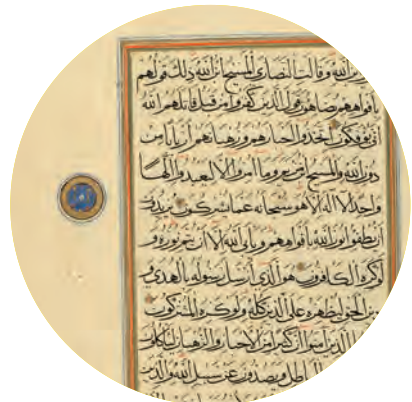 ابن الله وقالت النصارى المسيح ابن الله ذلك قولهم
بافواههم يضاهون قول الذين كفروا من قبل قاتلهم الله
انى يؤفكون اتخذوا احبارهم ورهبانهم اربابا من
دون الله والمسيح ابن مريم وما امروا الا ليعبدوا الها
واحدا لا اله الا هو سبحانه عما يشركون يريدون
ان يطفوا نور الله بافواههم ويابى الله الا ان يتم نوره و
لو كره الكافرون هو الذي ارسل رسوله بالهدى و
دين الحق ليظهره على الدين كله ولو كره المشركون
الذين آمنوا ان كثيرا من الاحبار والرهبان لياكلون
بالباطل ويصدون عن سبيل الله والذين